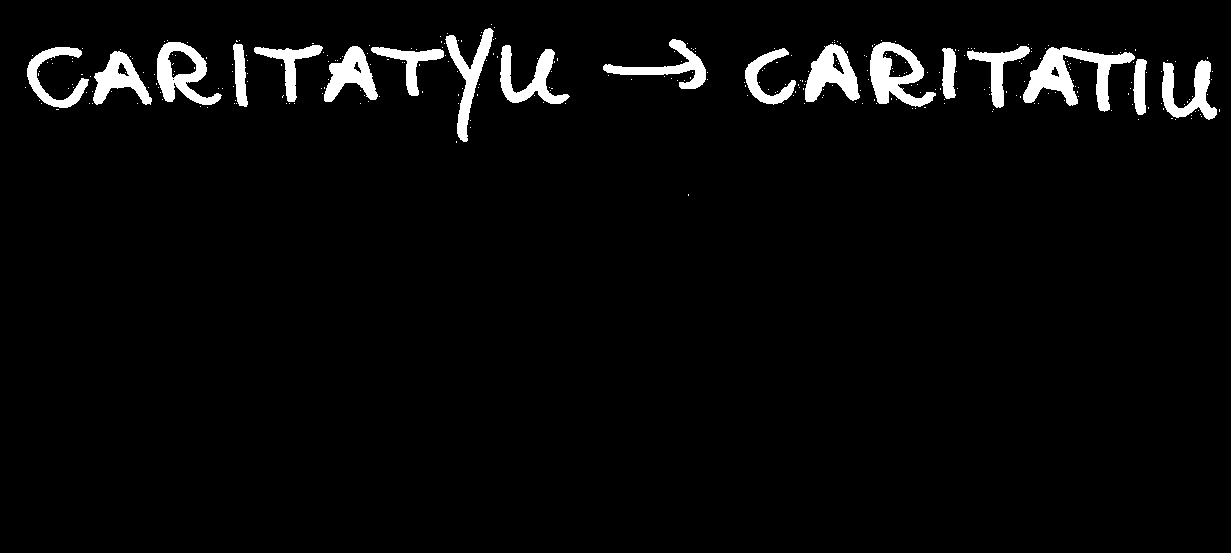 CARITATYU → CARITATIU